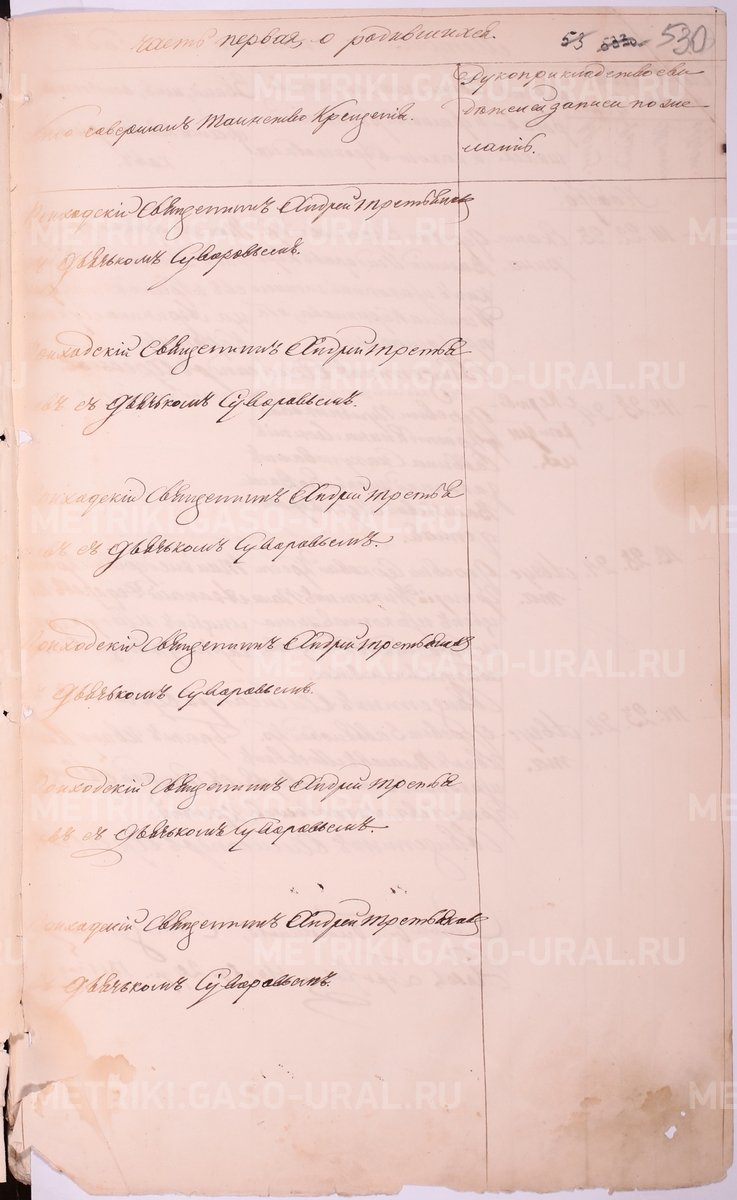 Часть первая, о родившихся.
55 5330 530
Кто совершалъ таинство Крещенія.
Рукоприкладство сви
дѣтелей записи по же
ланію.
Приходскій Священникъ Андрей Третьяковъ
съ Дьячькомъ Суворовымъ.
Приходскій Священникъ Андрей Третья
ковъ съ Дьячькомъ Суворовымъ.
Приходскій Священникъ Андрей Третья
ковъ съ Дьячькомъ Суворовымъ.
Приходскій Священникъ Андрей Третьяковъ
съ Дьячькомъ Суворовымъ.
Приходскій Священникъ Андрей Третья
ковъ съ Дьячькомъ Суворовымъ.
Приходскій Священникъ Андрей Третьяковъ
съ Дьячькомъ Суворовымъ.
METRIKI.GASO-URAL.RU